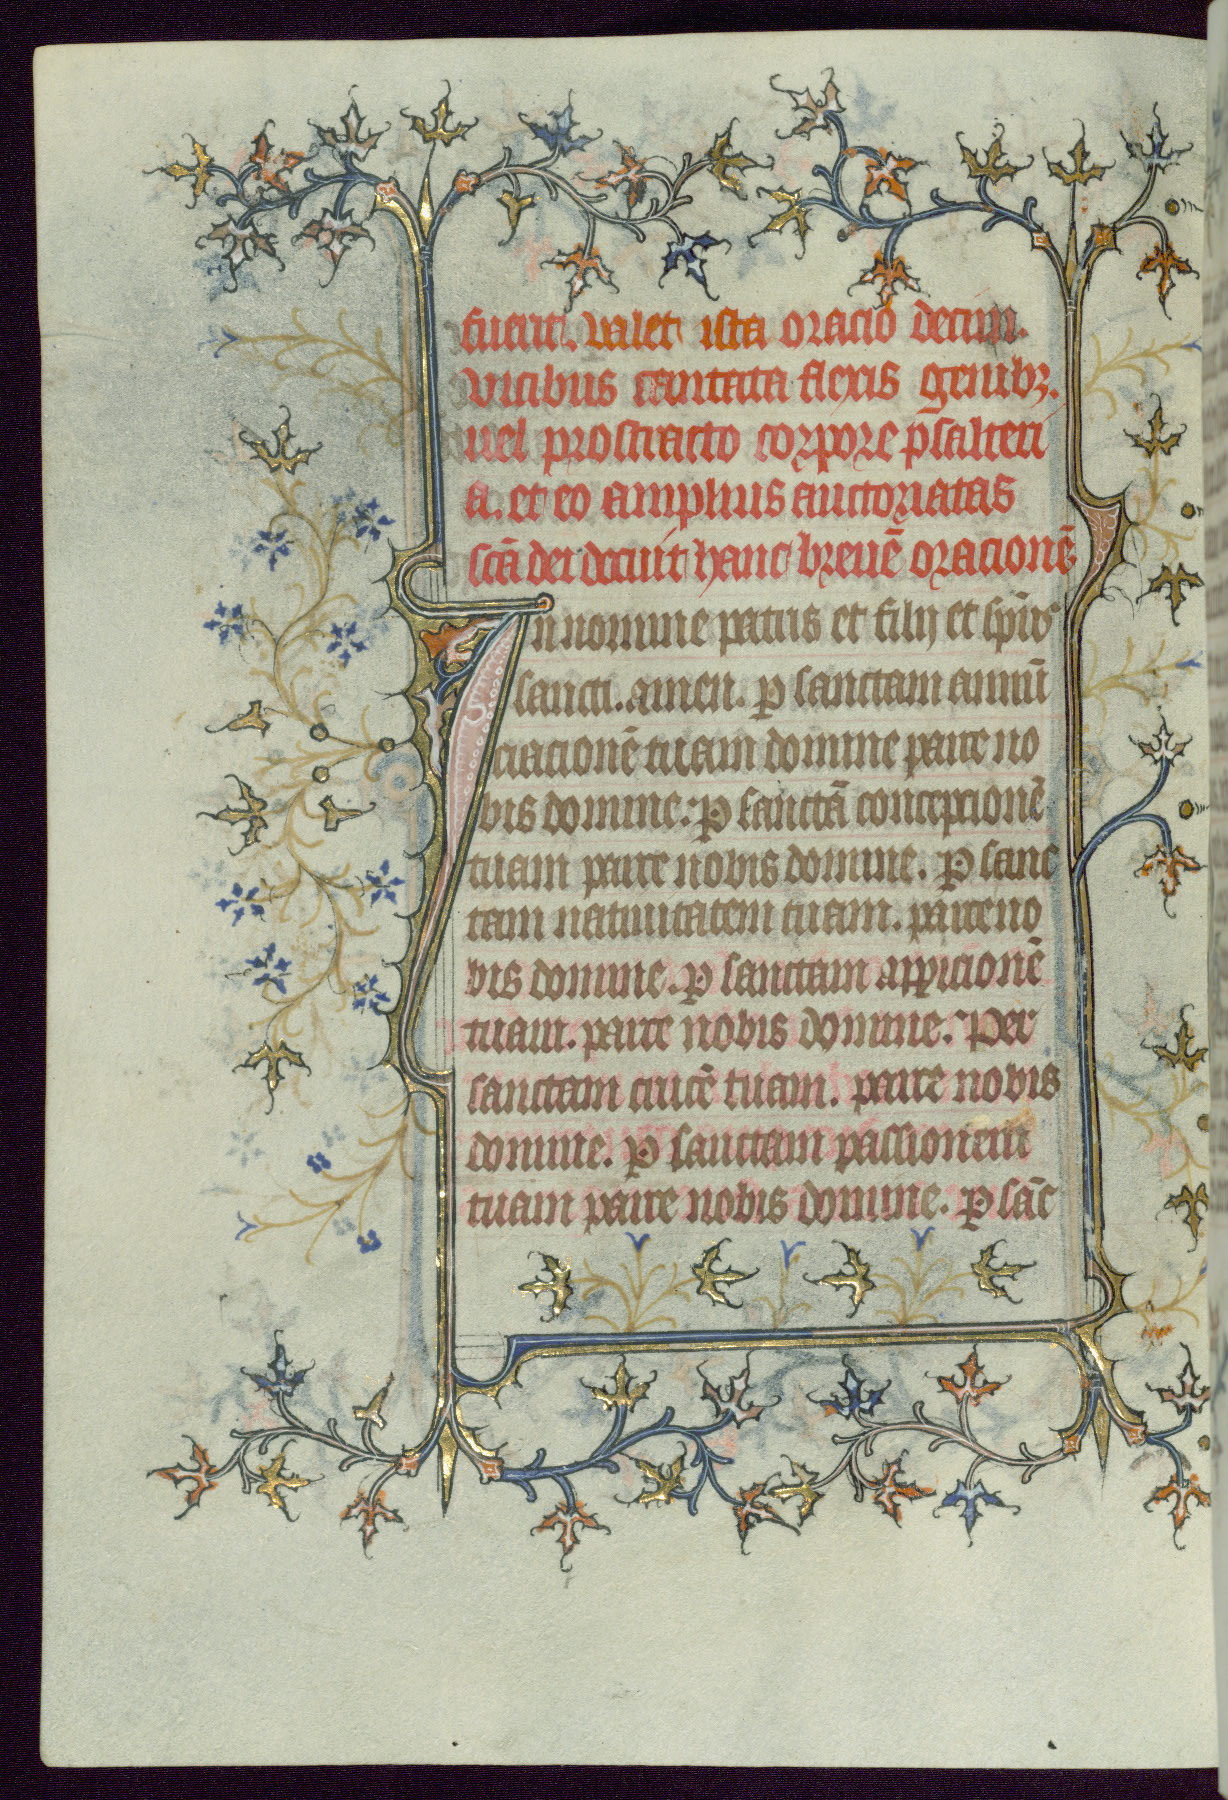 fuerit. valet ista oracio decim.
vicibus cantata flexis genibꝫ.
uel prostracto corpore psalteri
a. et eo amplius auctoriatas
scā dei decuit hanc breuē oracionē
In nomine patris et filij et spūs
sancti. amen. ꝑ sanctam annū
ciacionē tuam domine parce no
bis domine. ꝑ sanctā concepcionē
tuam parce nobis domine. ꝑ sanc
tam natiuitatem tuam. parce no
bis domine. ꝑ sanctam appicionē
tuam. parce nobis domine. Per
sanctam crucē tuam. parce nobis
domine. ꝑ sanctam passionem
tuam parce nobis domine. ꝑ sāc